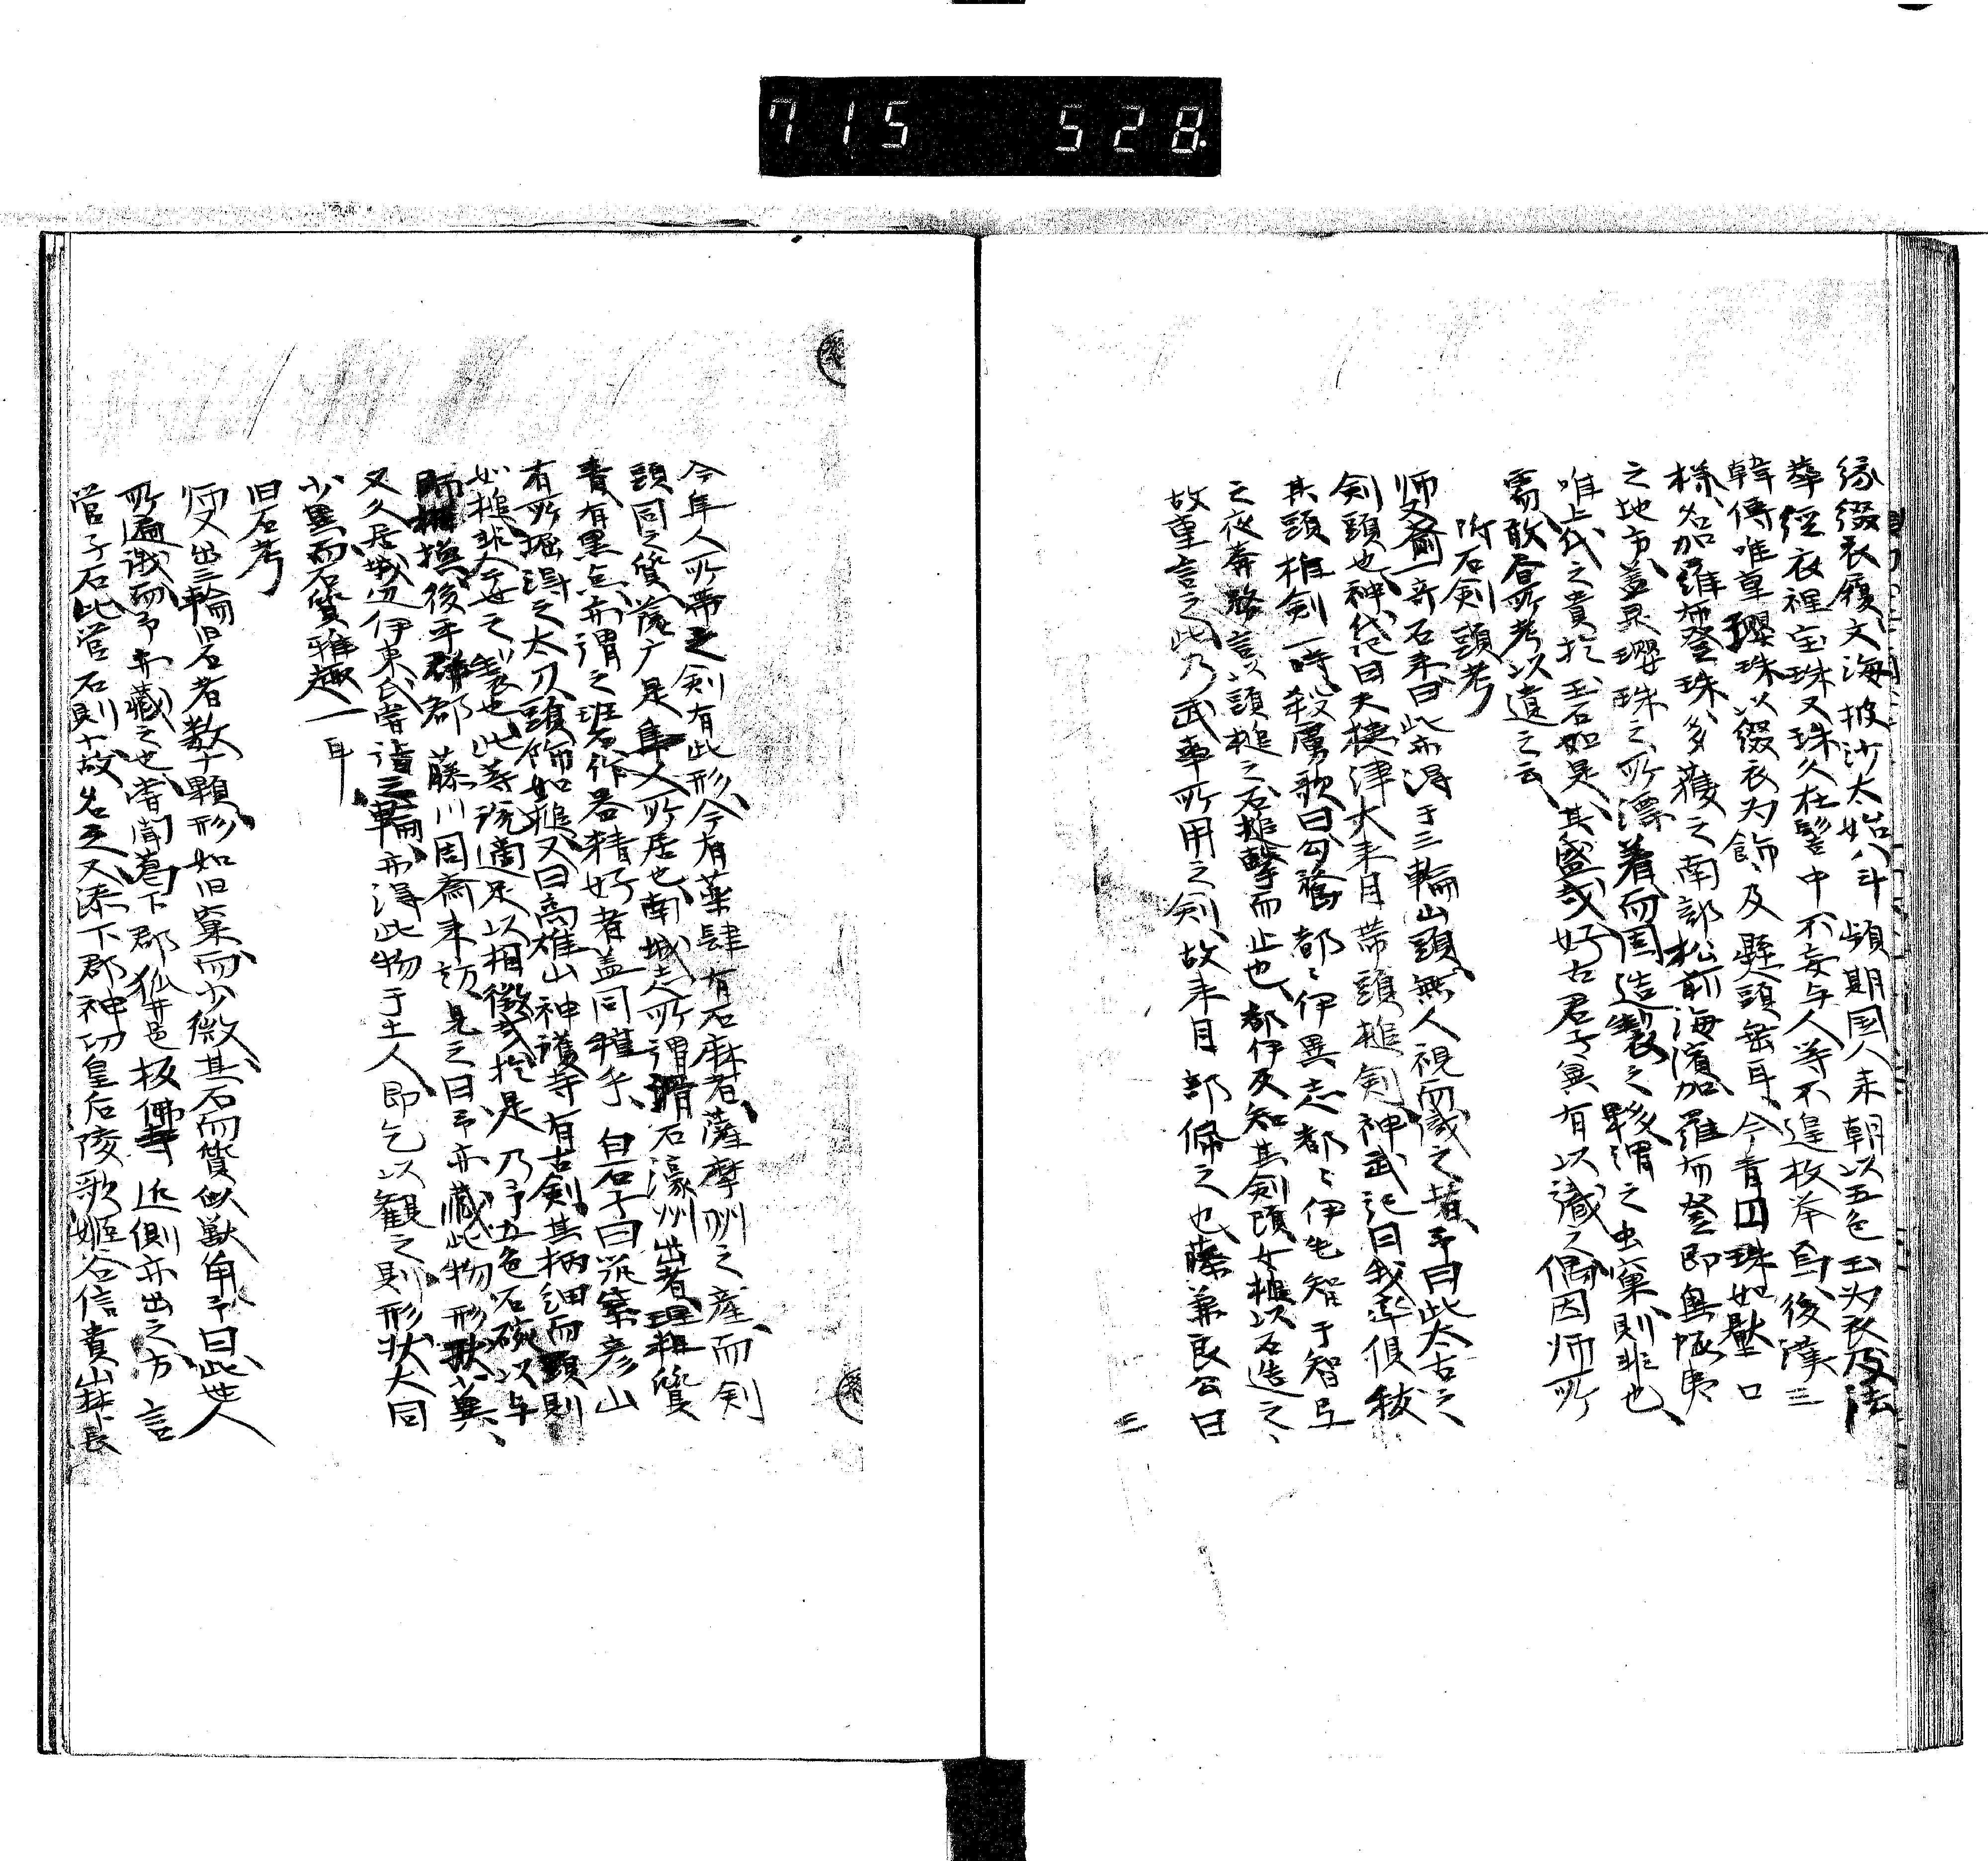 715 528
縁綴衣履文海披沙太始八年頻期国人来朝以五色玉为衣及法
華経衣裡宝珠又珠久在髻中不妄与人等不遑枚挙焉後漢三
韓傳唯草瓔珠以綴衣为飾及縣頭垂耳今青四珠如壓口
様名加羅而登珠多獲之南部松前海濱加羅而登即奥陬夷
之地方蓋是瓔珠之所漂着而固造製之夥謂之虫窠則非也
唯上代之貴於玉石如是其盛哉好古君子奚有以識之偶因师所
需敢昏所考以遺之云
所石剣頭考
师又齎一奇石来曰此亦得于三輪山頭無人視而識之者予曰此太古之
剣頭也神代紀曰天槵津大来目帯頭槌剣神武記曰我卒倶抜
其頭椎剣一時殺虜歌曰勾騖都々伊異志都々伊毛智于智弖
之夜莽務言以頭槌之石槌撃而止也都伊及知其剣頭女槌以石造之
故重言之此乃武事所用之剣故来目部佩之也藤兼良公曰
三
今隼人所帯之剣有此形今有薬肆有石麻者薩摩州之産而剣
頭同之質薩广是隼人所居也南城志所謂滑石濠州出者理粗質
青有黒点亦謂之斑石作器精好者盖同種乎白石子曰筑紫彦山
有所掘得之太刀頭飾如槌又曰高雄山神護寺有古剣其柄細而頭則
如槌非今世之製也此等説適足以相徴哉於是乃予五色石碗以与
师相換後平群郡藤川周斎来訪見之曰予亦蔵此物形状小異
又久居城辺伊東氏嘗詣三輪亦得此物于土人即乞以観之則形状大同
少異而石質雅趣一耳
旧石考
师又出三輪旧石者数十顆形如旧窠而少微其石而質似獣角予曰此世人
所遍識而予亦蔵之也嘗聞葛下郡狐井邑板佛寺近側亦出之方言
管子石此管石則十故名之又添下郡神功皇后陵歌姫谷信貴山林長